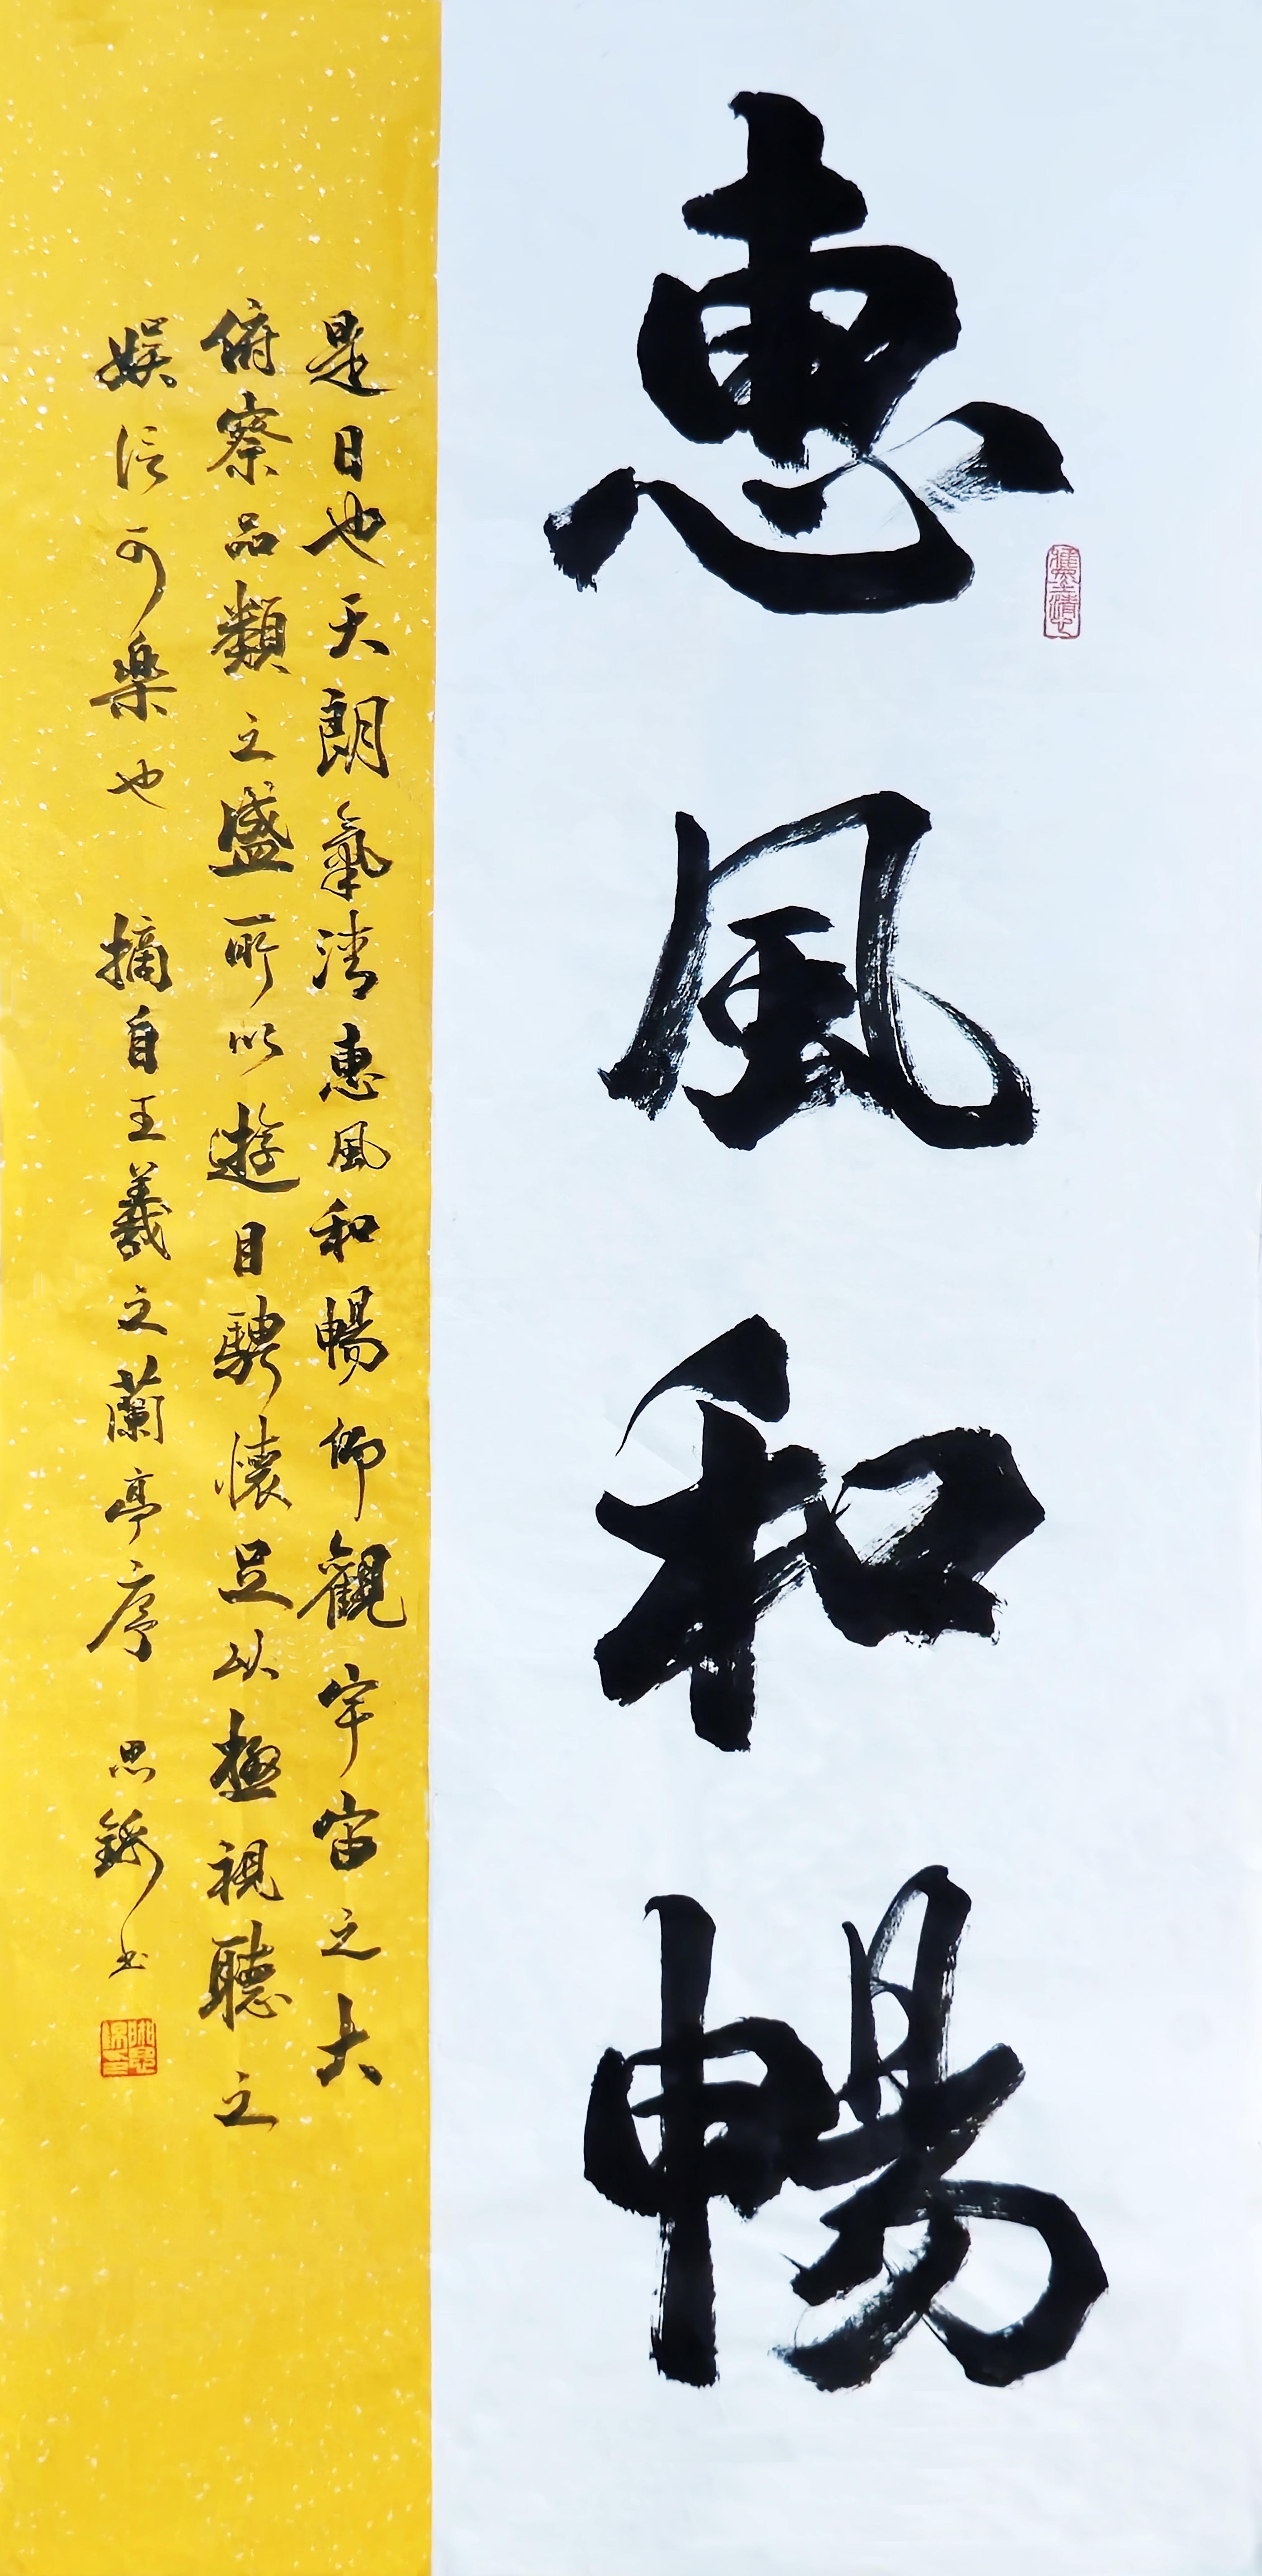 惠風和暢
是日也天朗氣清惠風和暢仰觀宇宙之大
俯察品類之盛所以遊目騁懷足以極視聽之
娱信可樂也 摘自王羲之蘭亭序 思 書